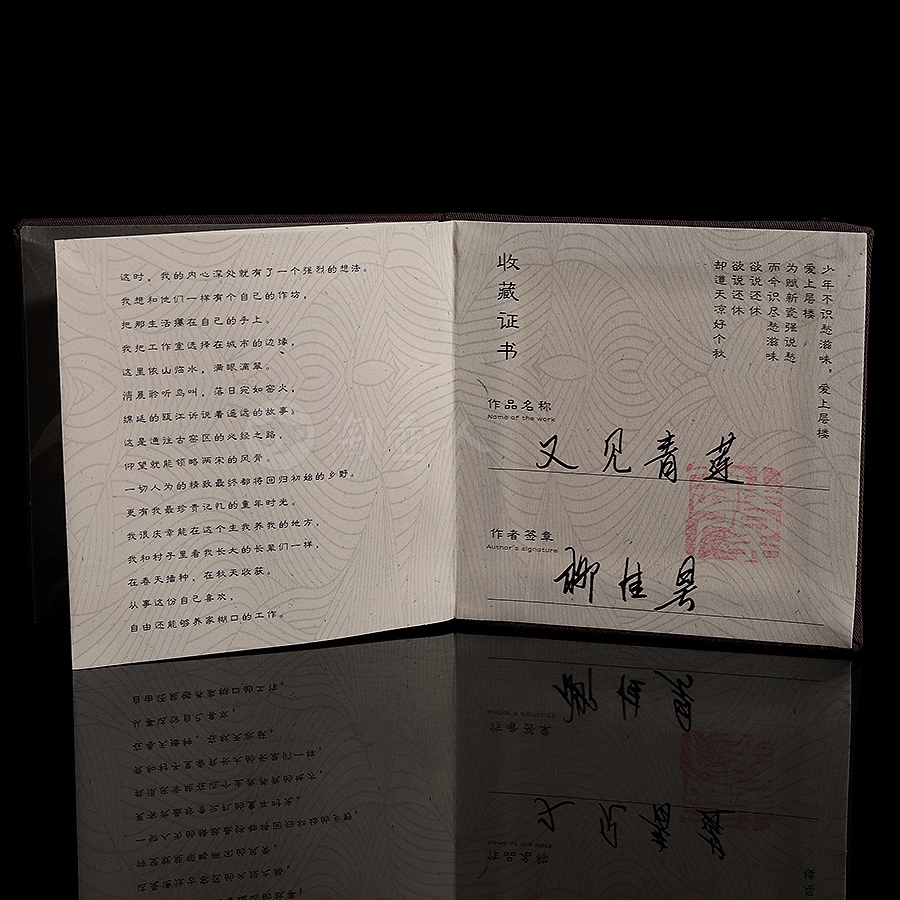 这时，我的内心深处就有了一个强烈的想法。
我想和他们一样有个自己的作坊，
把那生活攥在自己的手上。
我把工作室选择在城市的边缘，
这里依山临水，满眼滴翠。
清晨聆听鸟叫，落日宛如窑火，
绵延的瓯江诉说着遥远的故事；
这是通往古窑区的必经之路，
仰望就能领略两宋的风骨。
一切人为的精致最终都将回归初始的乡野。
更有我最珍贵记忆的童年时光。
我很庆幸能在这个生我养我的地方，
我和村子里看我长大的长辈们一样，
在春天播种，在秋天收获。
从事这份自己喜欢，
自由还能够养家糊口的工作。
少年不识愁滋味，爱上层楼
爱上层楼
为赋新瓷强说愁
而今识尽愁滋味
欲说还休
欲说还休
却道天凉好个秋
收藏证书
作品名称
Name of the work
又见青莲
作者签章
Author's signature
柳佳昊